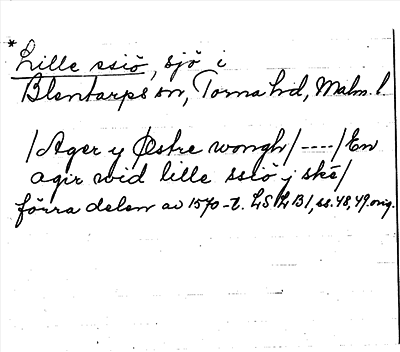 * Lille ssiö, sjö i
Blentarps sn, Torna hd, Malm. l.
/Ager y Østre wongh/----/En
agir wid lille ssiö j skè/
förra delen av 1570-t. LSLB1, ss. 48, 49. orig.